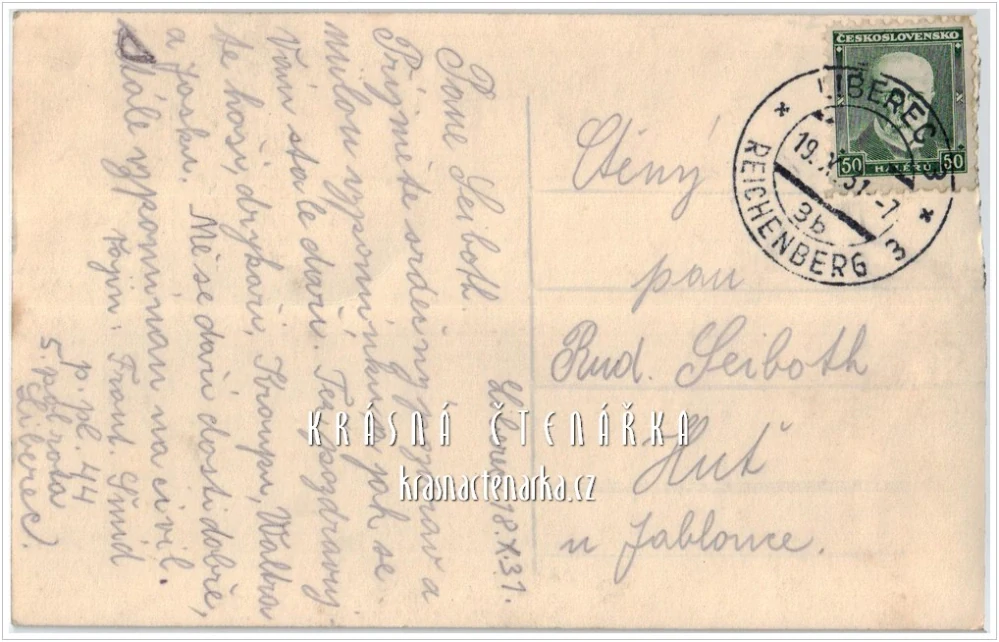 Liberec 18.X.31.
Pane Seiboth
Přijměte srdečný pozdrav a
milou vzpomínku a jak se
Vám stále daří. Též pozdravuj-
te hoši, drykaři, Kroupu, Waltra
a Josku. Mě se daří dosti dobře,
stále vzpomínám na civil.
Frant. Šmíd
p. pl. 44
5. polní rota
Liberec.
ČESKOSLOVENSKO
50 HALÉŘŮ 50
LIBEREC 3
19.X.31.-7
3b
REICHENBERG 3
Ctěný
pan
Rud. Seiboth
Huť
u Jablonce.
KRÁSNÁ ČTENÁŘKA
krasnactenarka.cz